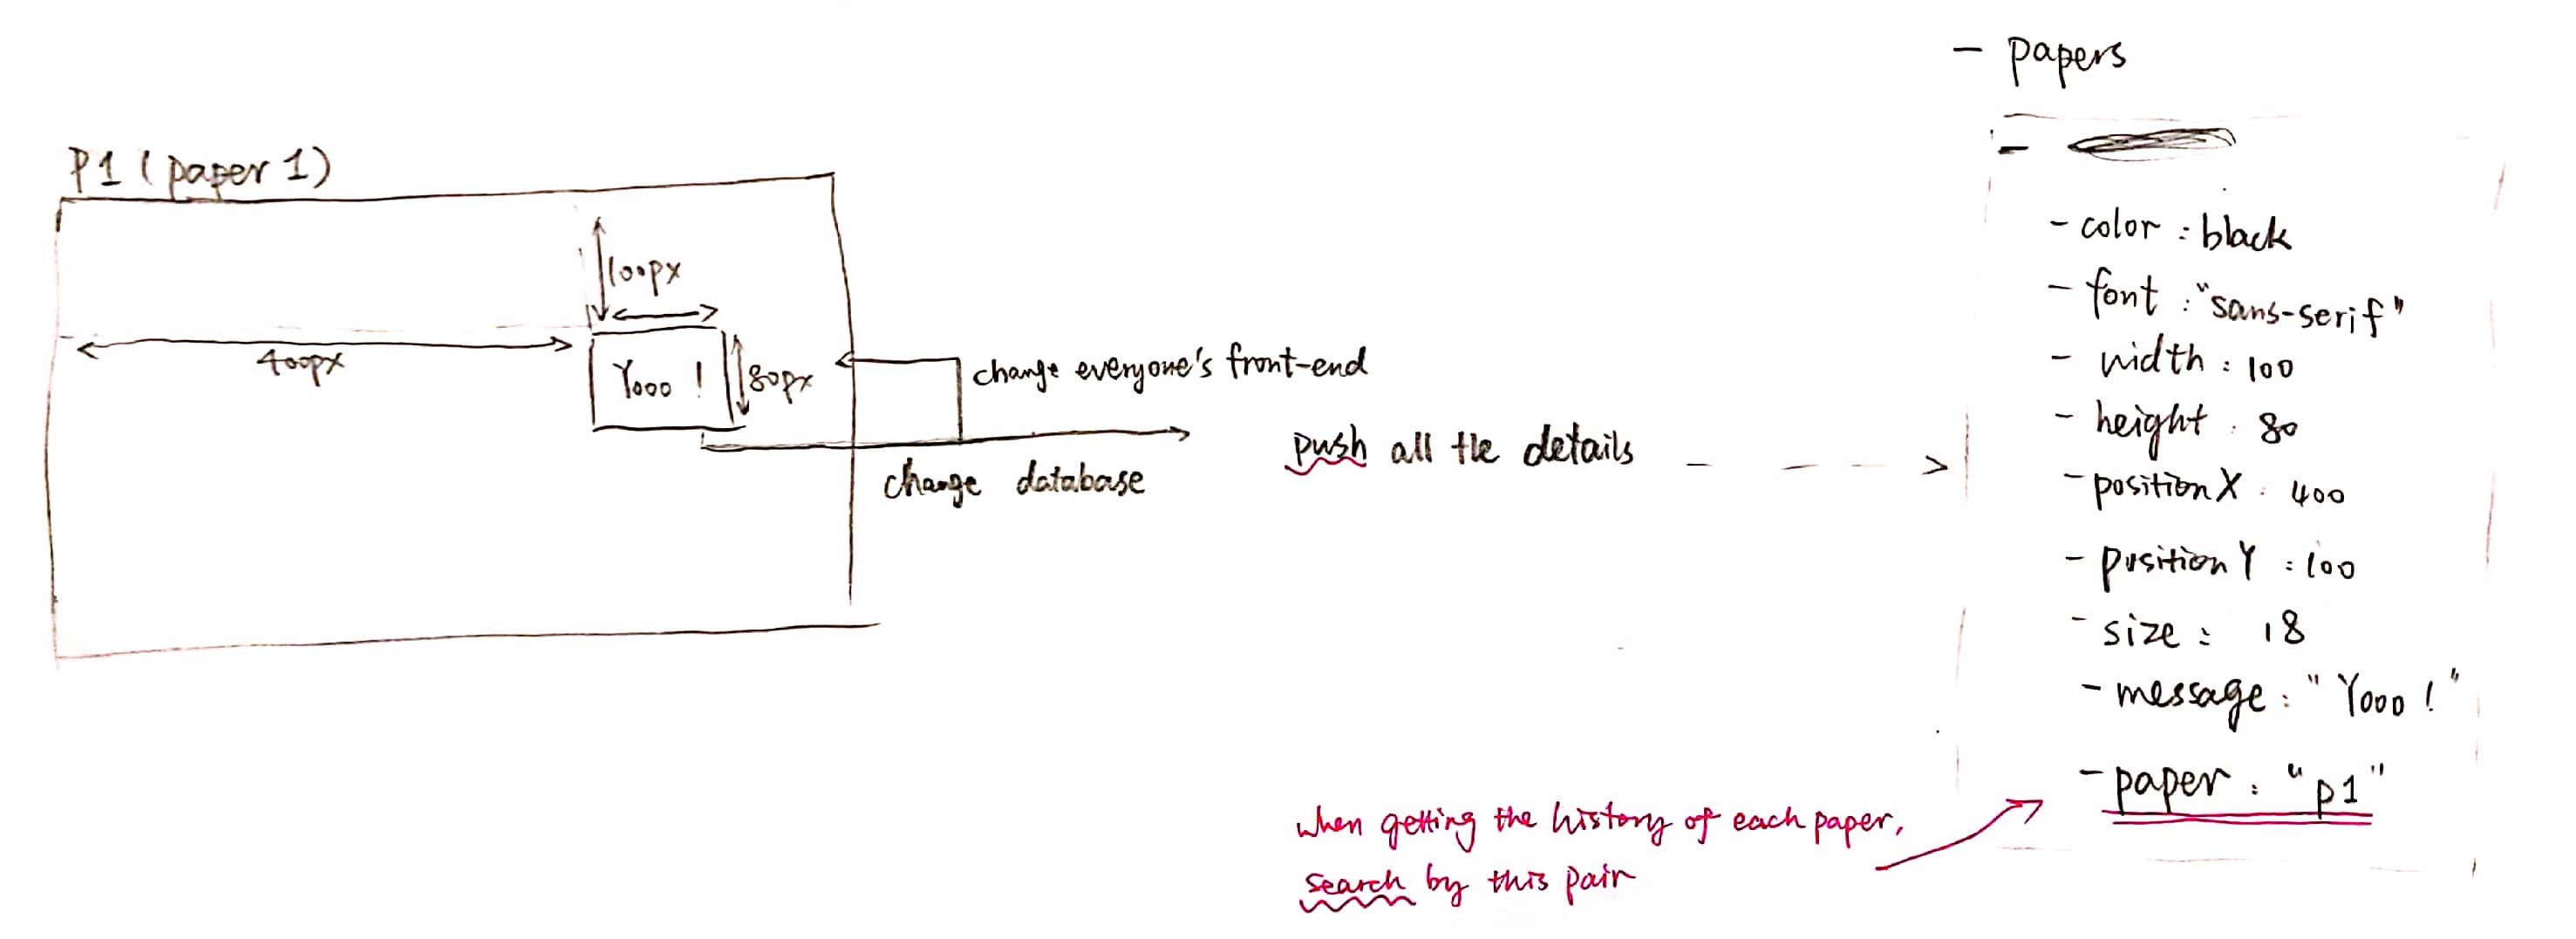 P1 (paper 1)
100px
400px
Yooo !
80px
change everyone's front-end
change database
push all the details
- papers
-
- color : black
- font : "sans-serif"
- width : 100
- height : 80
- positionX : 400
- positionY : 100
- size : 18
- message : "Yooo !"
- paper : "p1"
when getting the history of each paper,
search by this pair